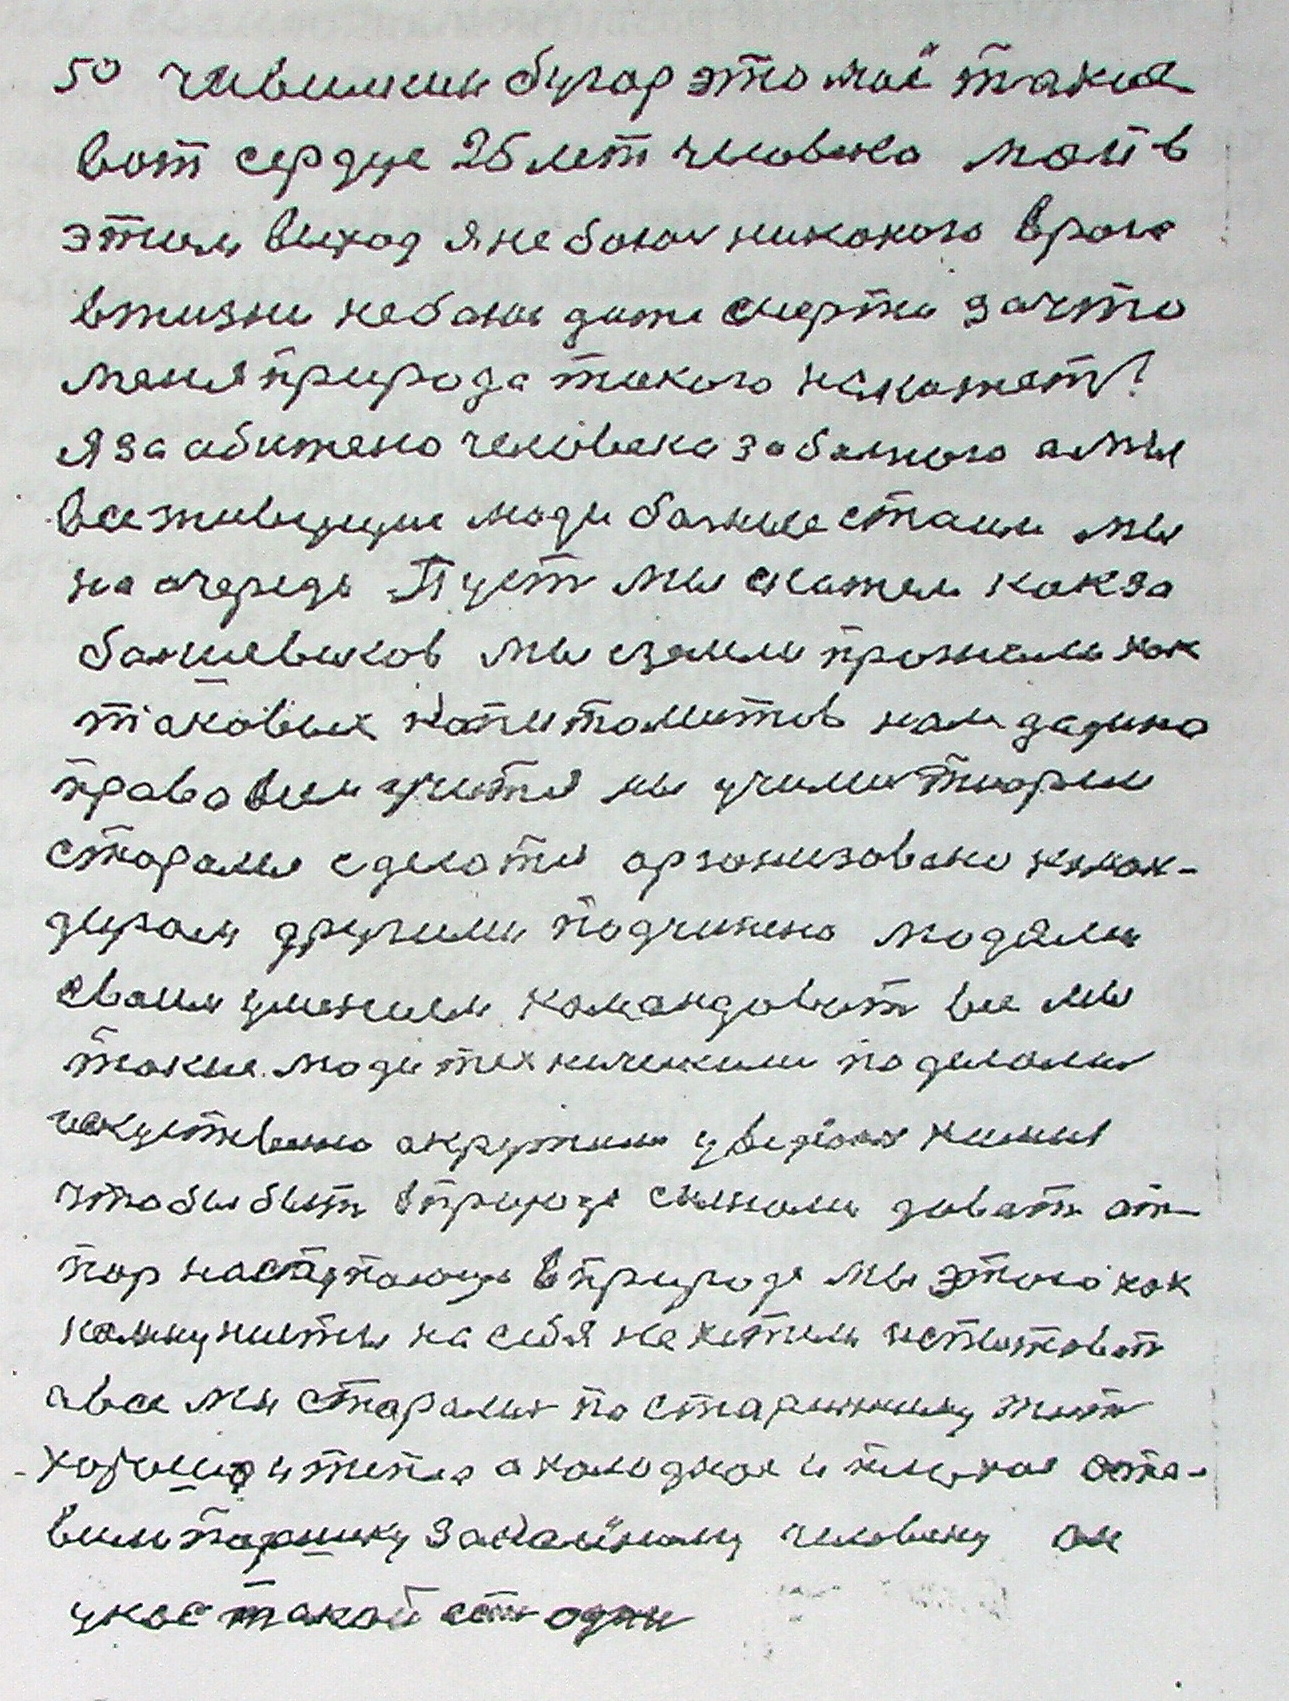 50 Чивилкин бугор это моё такое
вот сердце 25 лет человека мой в
этим выход я не боюсь никакого врага
в жизни не боюсь даже смерти за что
меня природа такого накажет?
Я за обижено человека за болного а мы
все живущие люди болные стали мы
на очередь Пуст мы скажем как за
болшевиков мы с земли прожали как
таковых капиталистов нам дадено
право всем учится мы учимся теории
стораемся сделоти организовано
другими подчинено людями
сваим умением камандоват все мы
такие люди технически поделалис
искуственно окружили химия
чтобы быт в природе силными дават от-
пор наступающе в природе мы этого как
коммунисты на себя не хотели испытоват
а все мы старалис по старинному жит
хорошо и тепло а холодное и плохое оста-
вили Паршику Закалёному человеку он
у нас такой ест один